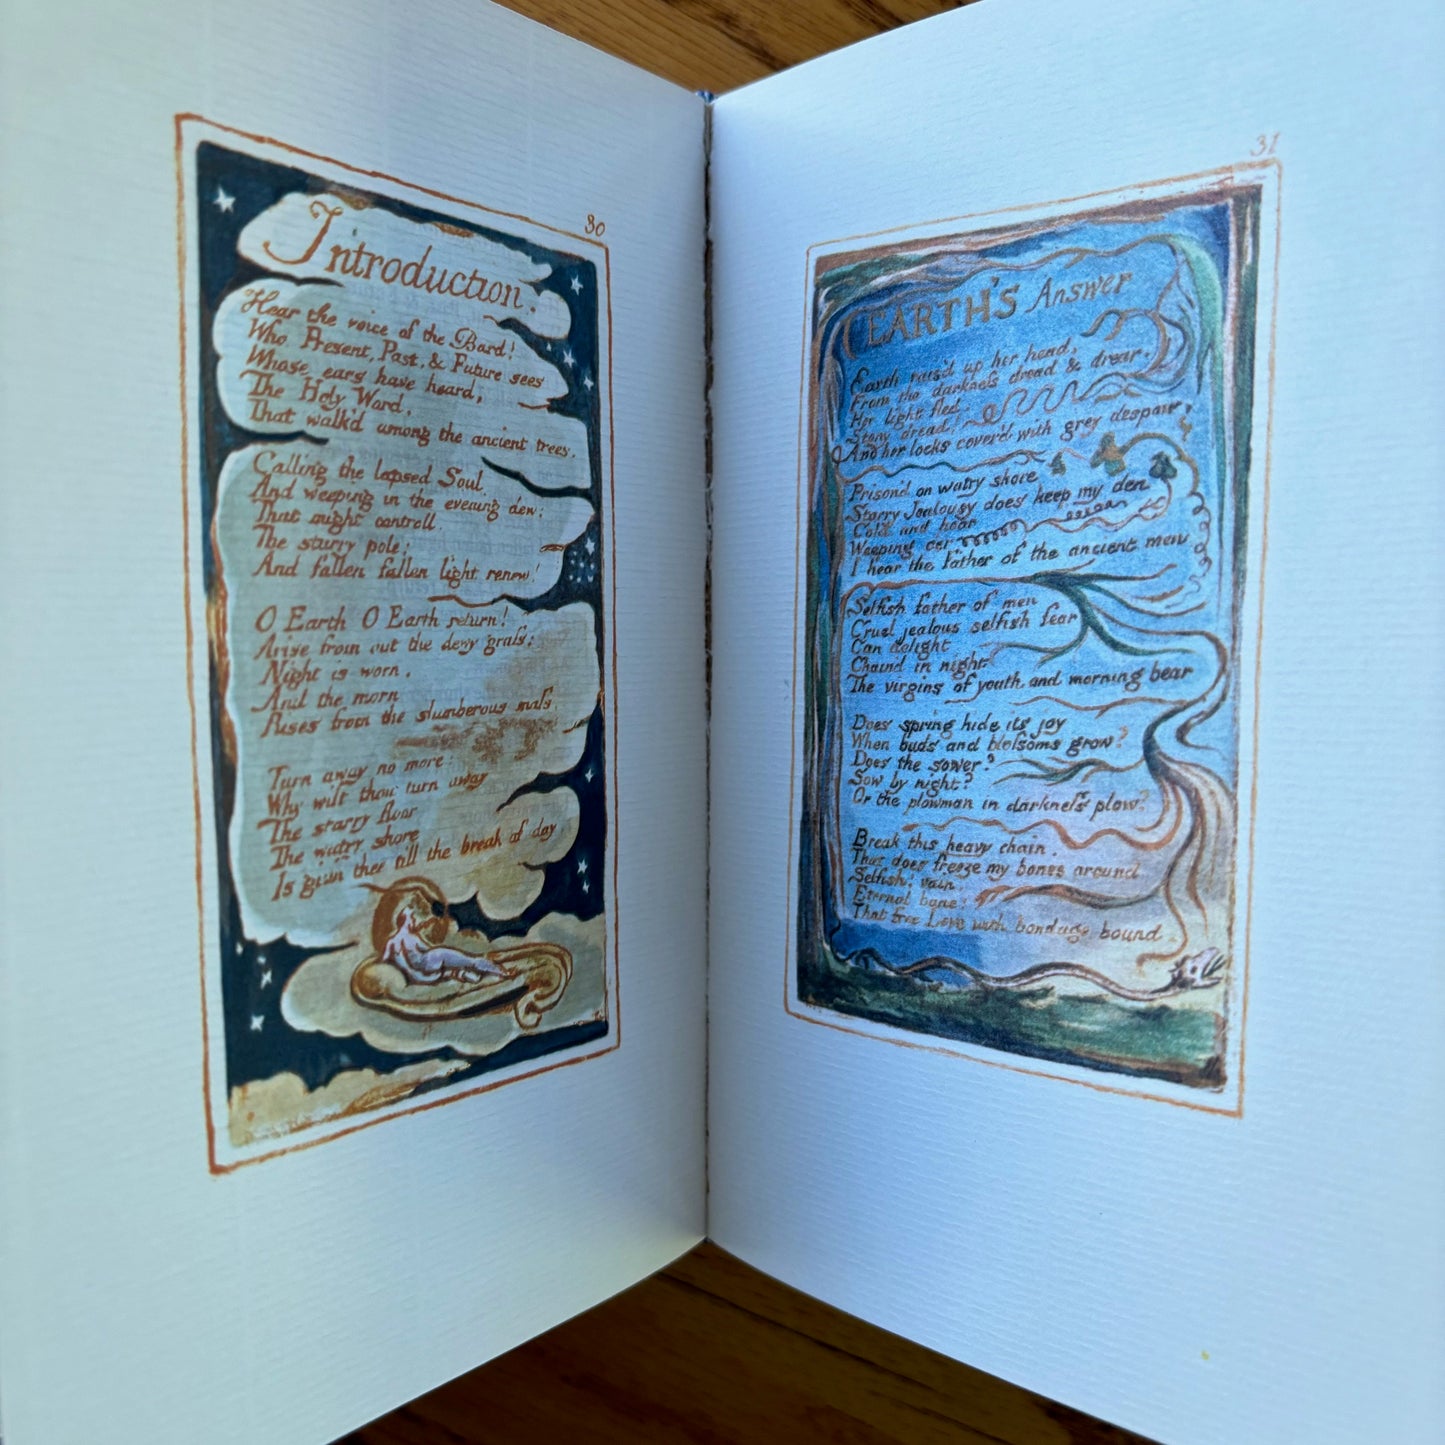 30
Introduction.
Hear the voice of the Bard!
Who Present, Past, & Future sees
Whose ears have heard,
The Holy Word,
That walk'd among the ancient trees.
Calling the lapsed Soul
And weeping in the evening dew:
That might controll
The starry pole;
And fallen fallen light renew!
O Earth O Earth return!
Arise from out the dewy grass;
Night is worn,
And the morn
Rises from the slumberous mass
Turn away no more:
Why wilt thou turn away
The starry floor
The watry shore
Is giv'n thee till the break of day,
31
EARTH'S Answer
Earth rais'd up her head,
From the darkness dread & drear.
Her light fled:
Stony dread!
And her locks cover'd with grey despair.
Prison'd on watry shore
Starry Jealousy does keep my den
Cold and hoar
Weeping o'er
I hear the father of the ancient men
Selfish father of men
Cruel jealous selfish fear
Can delight
Chain'd in night
The virgins of youth and morning bear
Does spring hide its joy
When buds and blossoms grow?
Does the sower?
Sow by night?
Or the plowman in darkness plow?
Break this heavy chain,
That does freeze my bones around
Selfish! vain,
Eternal bane!
That free Love with bondage bound.